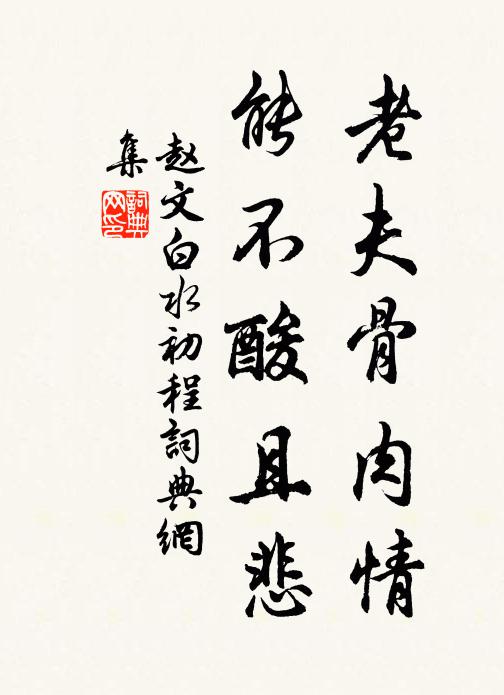 老夫骨肉情
能不酸且悲
赵文白水初程詞典網
集
詞典
网印